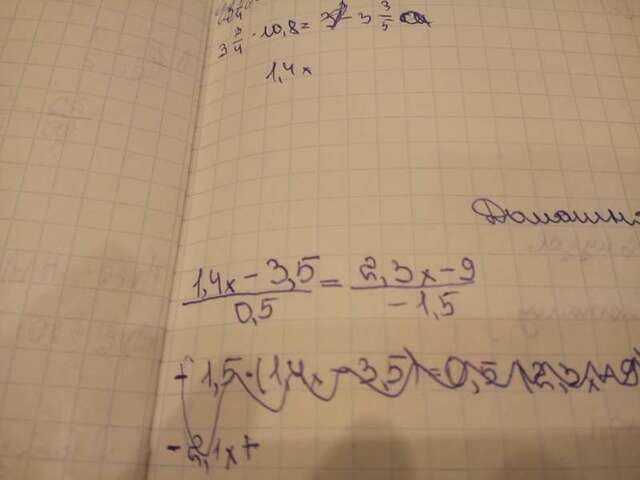 3 3/4 · 10,8 = 3 3/5
1,4x
Домашн
(1,4x - 3,5)/0,5 = (2,3x - 9)/(-1,5)
-1,5·(1,4x - 3,5) = 0,5 (2,3x - 9)
-2,1x +